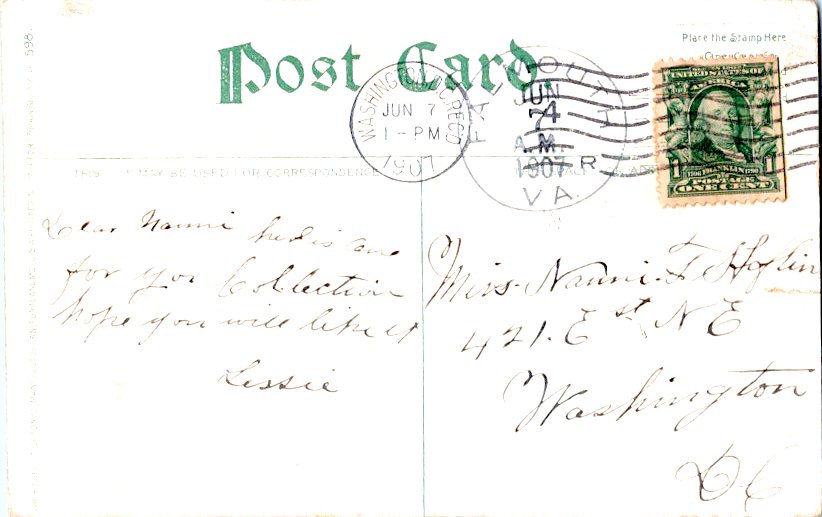 598.
Post Card
Place the Stamp Here
WASHINGTON, D.C. REC'D
JUN 7
1 - PM
1907
FALMOUTH
JUN
7
A.M.
1907
VA.
UNITED STATES OF
AMERICA
1706 FRANKLIN 1790
POSTAGE
ONE CENT
THIS MAY BE USED FOR CORRESPONDENCE
Dear Nanni her is one
for you Collection
hope you will like it
Lessie
Miss. Nanni. F
421. E st N E
Washington
D C